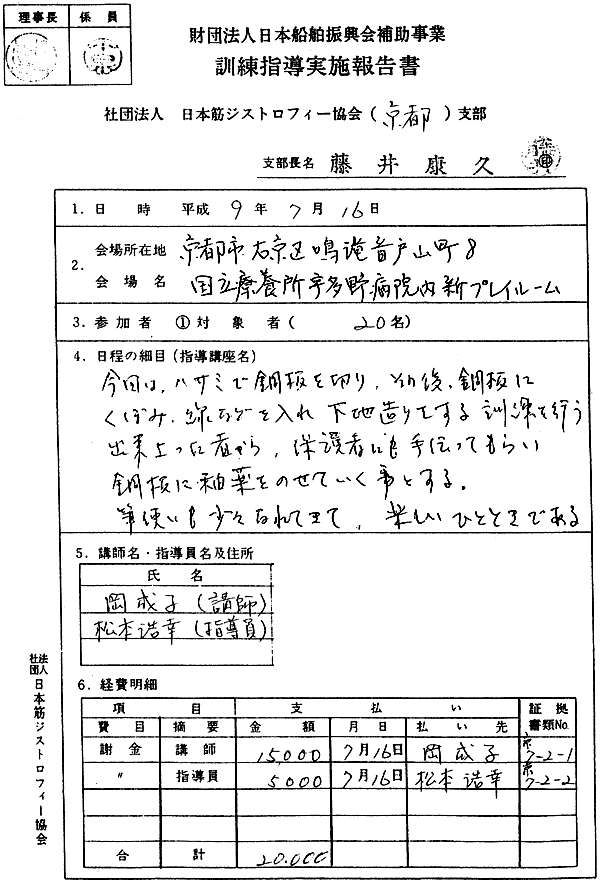 理事長 係員
財団法人日本船舶振興会補助事業
訓練指導実施報告書
社団法人 日本筋ジストロフィー協会(京都)支部
支部長名 藤井康久
1.日 時 平成 9年 7月 16日
2. 会場所在地 京都市右京区鳴滝音戸山町8
会場名 国立療養所宇多野病院内新プレイルーム
3.参加者 ①対象者( 20名)
4.日程の細目(指導講座名)
今回は、ハサミで銅板を切り、その後、銅板に
くぼみ、線などを入れ下地造りをする訓練を行う
出来上った者から、保護者にも手伝ってもらい
銅板に釉薬をのせていく事とする。
筆使いも少々なれてきて、楽しいひとときである
5.講師名・指導員名及住所
氏名
岡成子(講師)
松本浩幸(指導員)
6.経費明細
項目 支払い 証拠書類No.
費目 摘要 金額 月日 払い先
謝金 講師 15,000 7月16日 岡成子 京7-2-1
〃 指導員 5000 7月16日 松本浩幸 京7-2-2
合計 20.000
社団法人 日本筋ジストロフィー協会